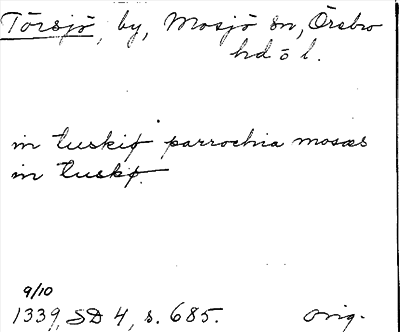 Törsjö, by, Mosjö sn, Örebro
hd o l.
in tuskiø parrochia mosæs
in tuskø.
9/10
1339, SD 4, s. 685. orig.